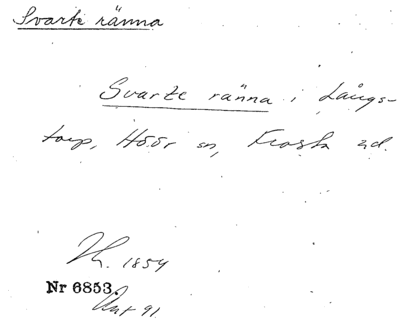 Svarte ränna
Svarte ränna i Långs-
torp, Höör sn, Frosta hd.
Th. 1854
Nr 6853.
Ant 91